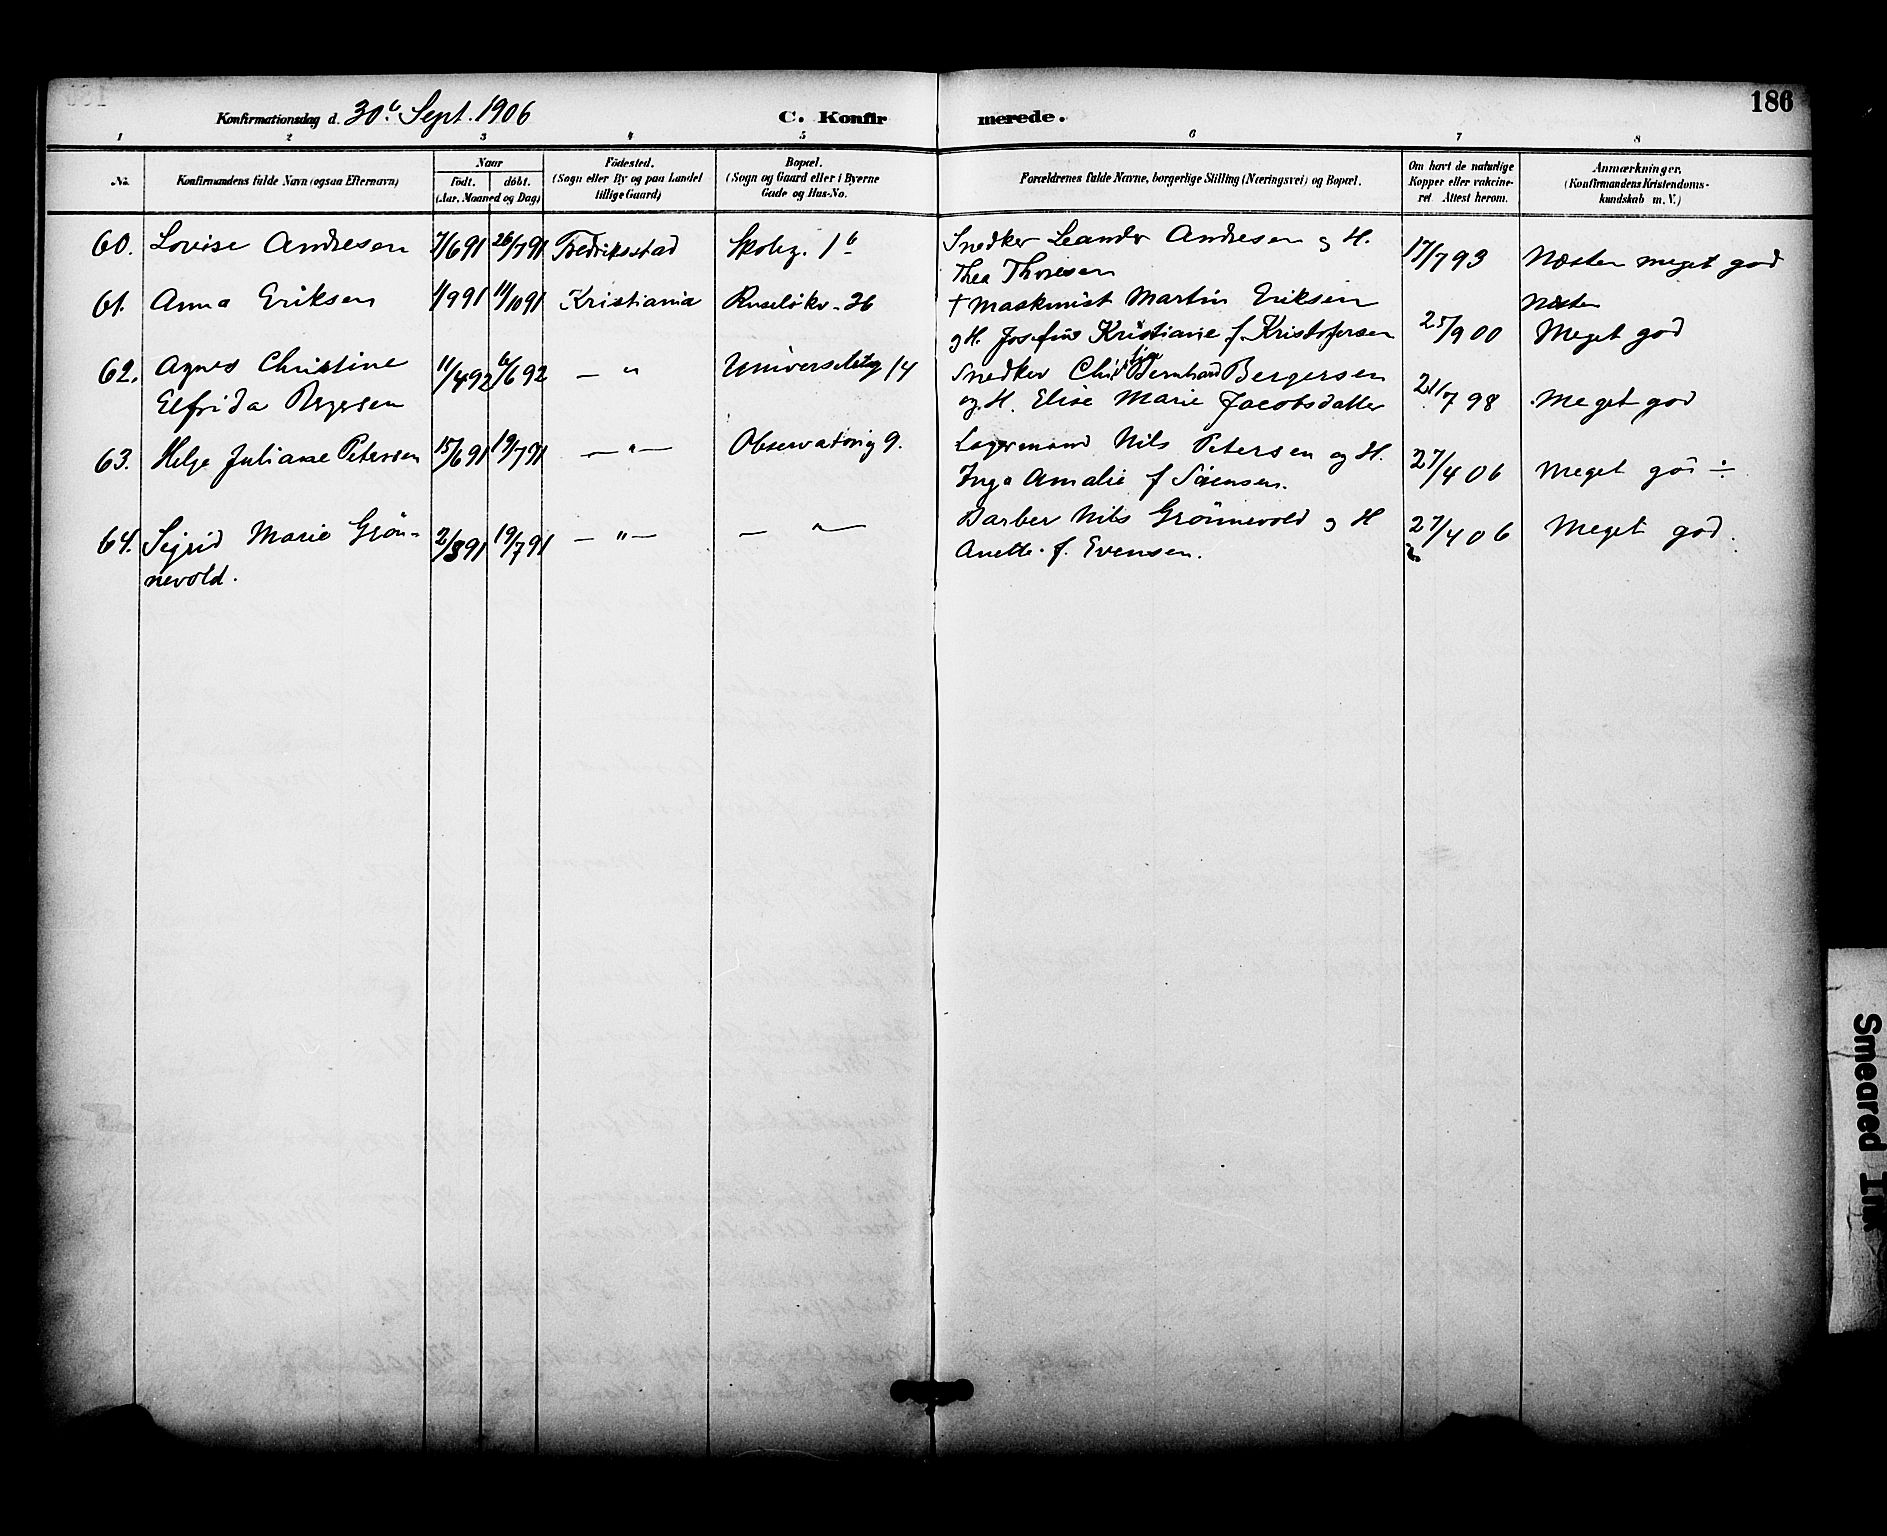 186
Konfirmationsdag d. 30te Sept. 1906
C. Konfirmerede.
1 2 3 4 5 6 7 8
No. Konfirmandens fulde Navn (ogsaa Efternavn) Naar født. døbt. (Aar, Maaned og Dag) Fødested. (Sogn eller By og paa Landet tillige Gaard) Bopæl. (Sogn og Gaard eller i Byerne Gade og Hus-No. Forældrenes fulde Navne, borgerlige Stilling (Næringsvei) og Bopæl. Om havt de naturlige Kopper eller vakcineret Attest herom. Anmærkninger. (Konfirmandens Kristendomskundskab m. V.)
60. Lovise Andresen 7/6 91 26/7 91 Fredriksstad Skoleg. 1b Snedker Leander Andresen og H. 17/7 93 Næsten meget god
Thea Thoresen
61. Anna Eriksen 1/9 91 11/10 91 Kristiania Ruseløkv. 26 † Maskinist Martin Eriksen Næsten
og H. Josefine Kristiane f. Kristofersen 25/9 00 Meget god
62. Agnes Christine 11/4 92 6/6 92 — " Universitetsg 14 Snedker Bernhard Bergersen
Elfrida Bergersen og H. Elise Marie Jacobsdatter 21/7 98 Meget god
63. Helga Juliane Petersen 15/6 91 19/7 91 — " — Observatorieg 9. Lagermand Nils Petersen og H.
Inga Amalie f Sørensen. 27/4 06 Meget god ÷
64. Sigrid Marie Grøn- 2/3 91 19/7 91 — " — — " — Barber Nils Grønnevold og H 27/4 06 Meget god.
nevold. Anette f. Evensen.
Smeared Ink